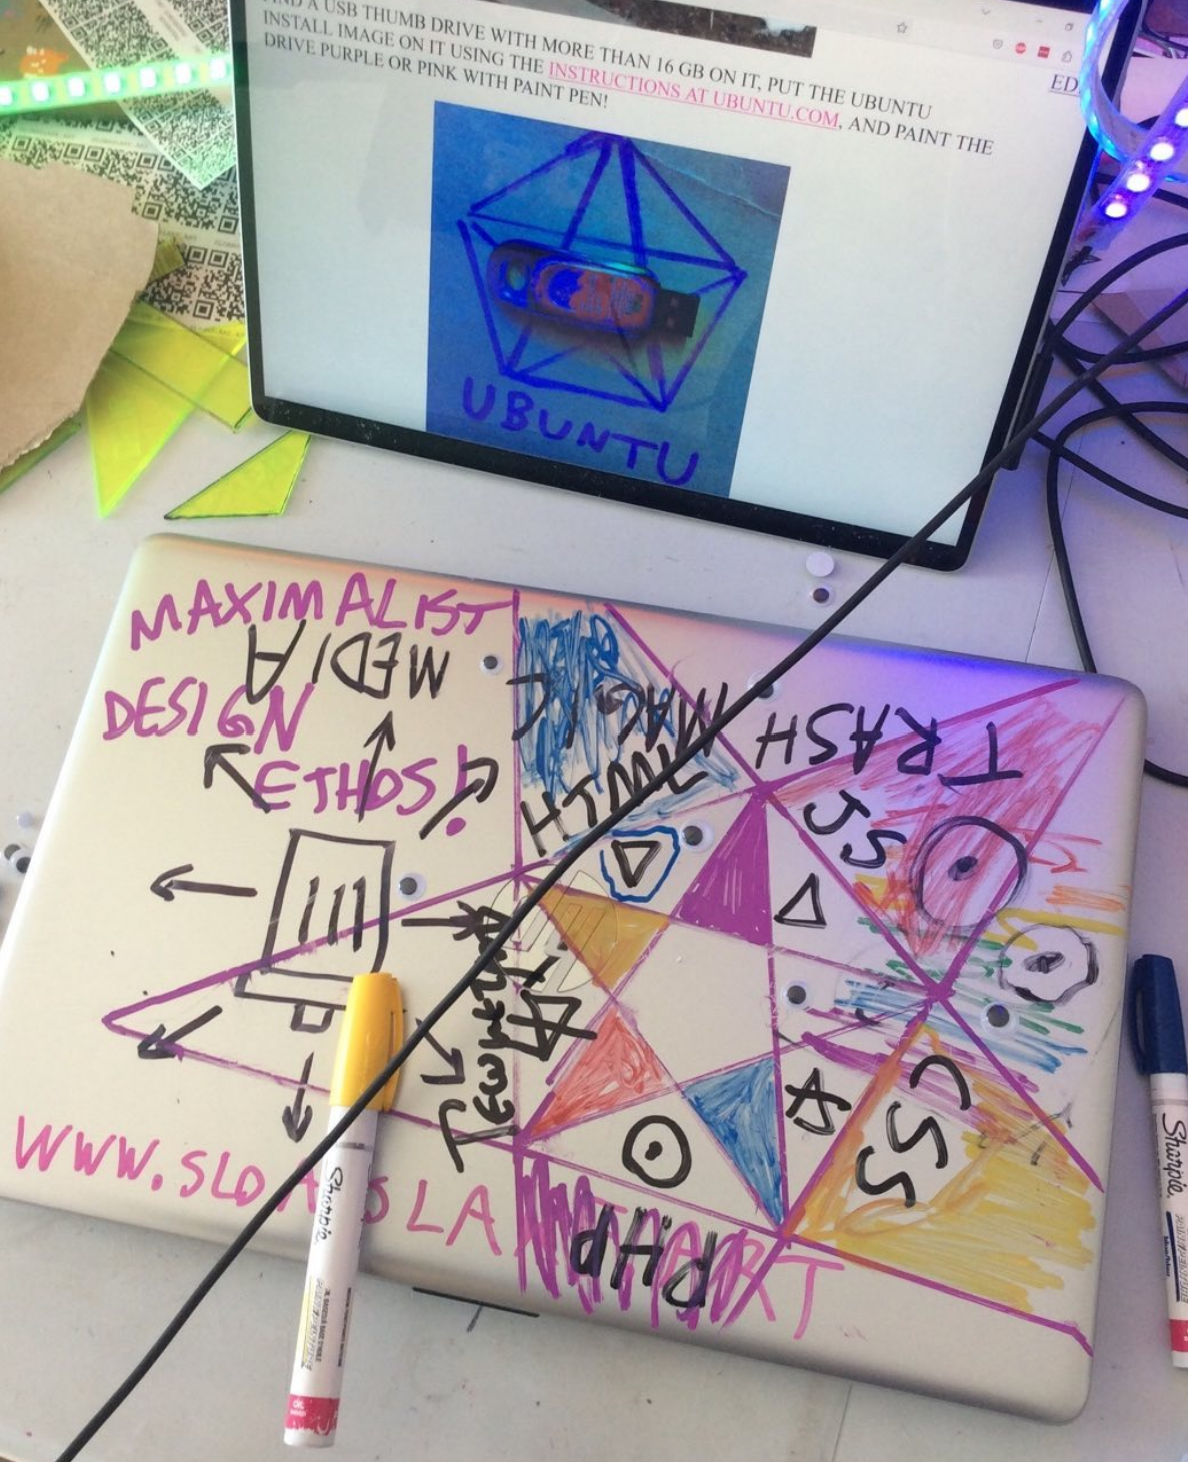 A USB THUMB DRIVE WITH MORE THAN 16 GB ON IT, PUT THE UBUNTU
INSTALL IMAGE ON IT USING THE INSTRUCTIONS AT UBUNTU.COM, AND PAINT THE
DRIVE PURPLE OR PINK WITH PAINT PEN!
UBUNTU
MAXIMALIST
DESIGN
ETHOS!
MEDIA
MAGIC
TRASH
HTML
JS
CSS
PHP
WWW.
SLA
Sharpie
Sharpie